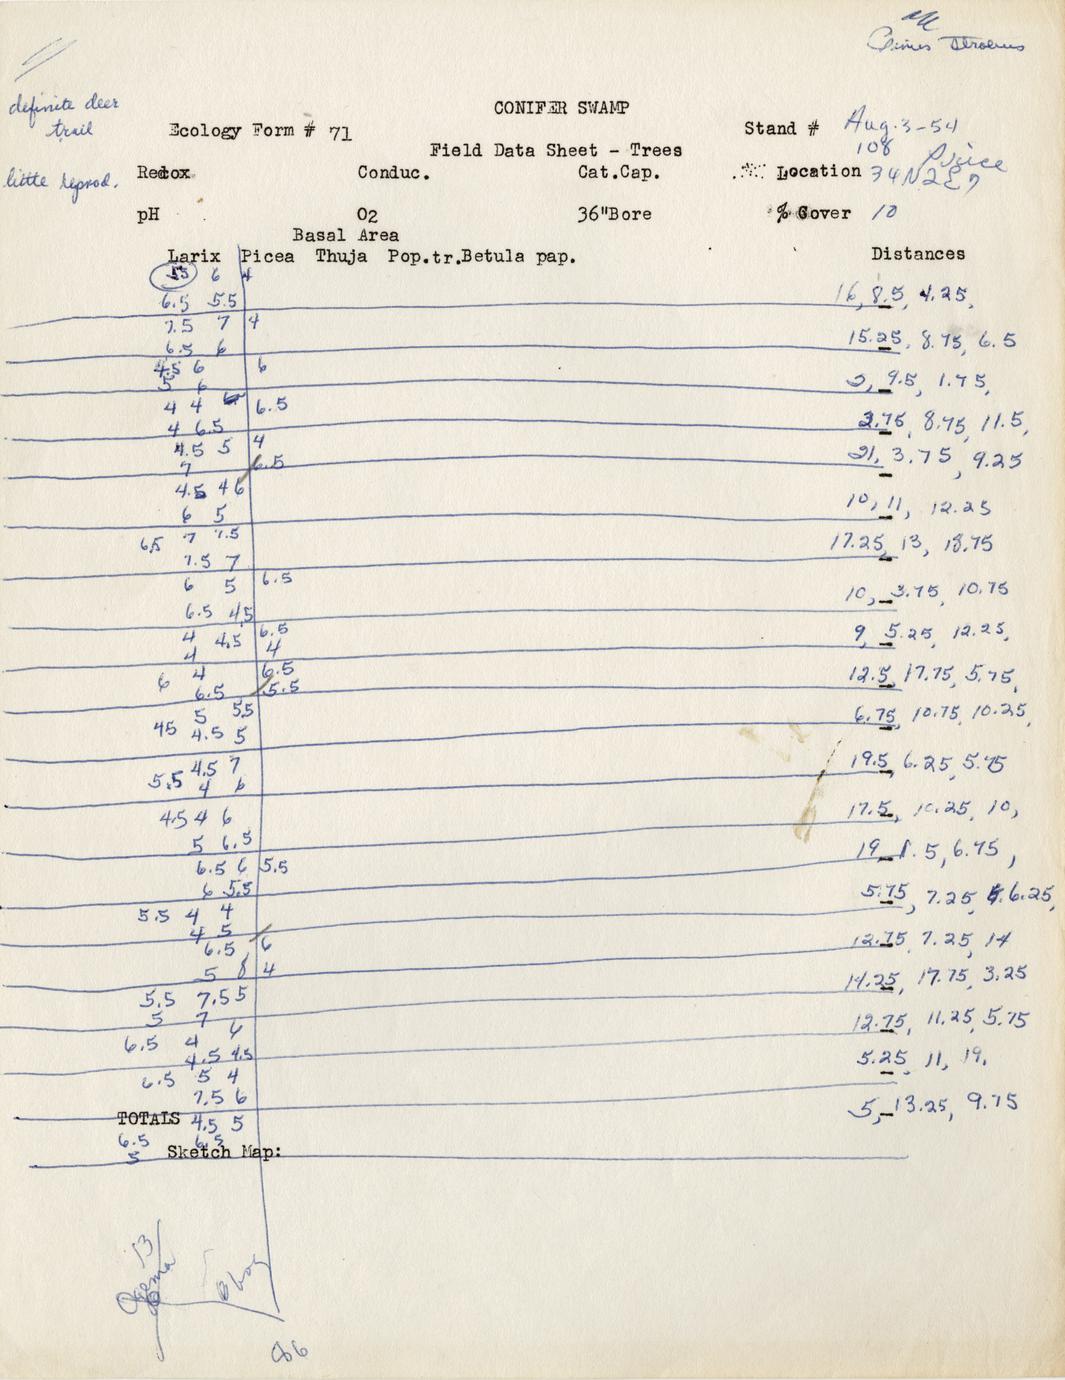 Pinus strobus
definite deer
trail
little reprod.
CONIFER SWAMP
Ecology Form # 71
Stand # Aug. 3-54
108
Field Data Sheet - Trees
Price
Redox Conduc. Cat.Cap. Location 34N2E7
pH O2 36"Bore % Cover 10
Basal Area
Larix Picea Thuja Pop.tr.Betula pap. Distances
6 4
6.5 5.5 16, 8.5, 4.25,
7.5 7 4
6.5 6 15.25, 8.75, 6.5
4.5 6 6
5 6 9.5, 1.75,
4 4 6.5
4 6.5 8.75, 11.5,
4.5 5 4
7 6.5 21, 3.75, 9.25
4.5 4 6
6 5 10, 11, 12.25
6.5 7 7.5
7.5 7 17.25, 13, 18.75
6 5 6.5
6.5 4.5 10, 3.75, 10.75
4 4.5 6.5
4 4 9, 5.25, 12.25,
6 4 6.5
6.5 5.5 12.5, 17.75, 5.75,
5 5.5
45 4.5 5 6.75, 10.75, 10.25,
4.5 7
5.5 4 6 19.5, 6.25, 5.75
4.5 4 6
5 6.5 17.5, 10.25, 10,
6.5 6 5.5
6 5.5 19 .5, 6.75,
5.5 4 4
4 5 5.75, 7.25, 6.25,
6.5 6
5 8 4 12.75, 7.25, 14
5.5 7.5 5
5 7 14.25, 17.75, 3.25
6.5 4 6
4.5 4.5 12.75, 11.25, 5.75
6.5 5 4
7.5 6 5.25, 11, 19.
TOTALS 4.5 5
6.5 6.5 5, 13.25, 9.75
5 Sketch Map:
13
Ogema
86